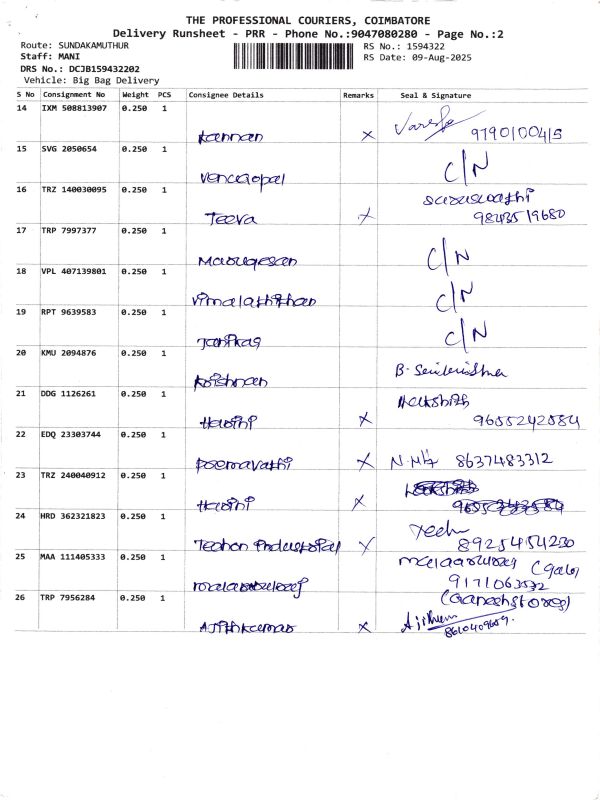 THE PROFESSIONAL COURIERS, COIMBATORE
Delivery Runsheet - PRR - Phone No.:9047080280 - Page No.:2
Route: SUNDAKAMUTHUR
RS No.: 1594322
Staff: MANI
RS Date: 09-Aug-2025
DRS No.: DCJB159432202
Vehicle: Big Bag Delivery
S No Consignment No Weight PCS Consignee Details Remarks Seal & Signature
14 IXM 508813907 0.250 1
Kannan X 9790100415
15 SVG 2050654 0.250 1
Venugopal C/N
16 TRZ 140030095 0.250 1 saraswathi
Jeeva X 9843519680
17 TRP 7997377 0.250 1
Murugesan C/N
18 VPL 407139801 0.250 1
C/N
19 RPT 9639583 0.250 1
C/N
20 KMU 2094876 0.250 1
Krishnan B.
21 DDG 1126261 0.250 1 Harshith
Harini X 9655242584
22 EDQ 23303744 0.250 1
X 8637483312
23 TRZ 240040912 0.250 1
X
24 HRD 362321823 0.250 1
X 8925454230
25 MAA 111405333 0.250 1
9171063532
26 TRP 7956284 0.250 1 (Ganesh stores)
Ajithkumar X 8610409659